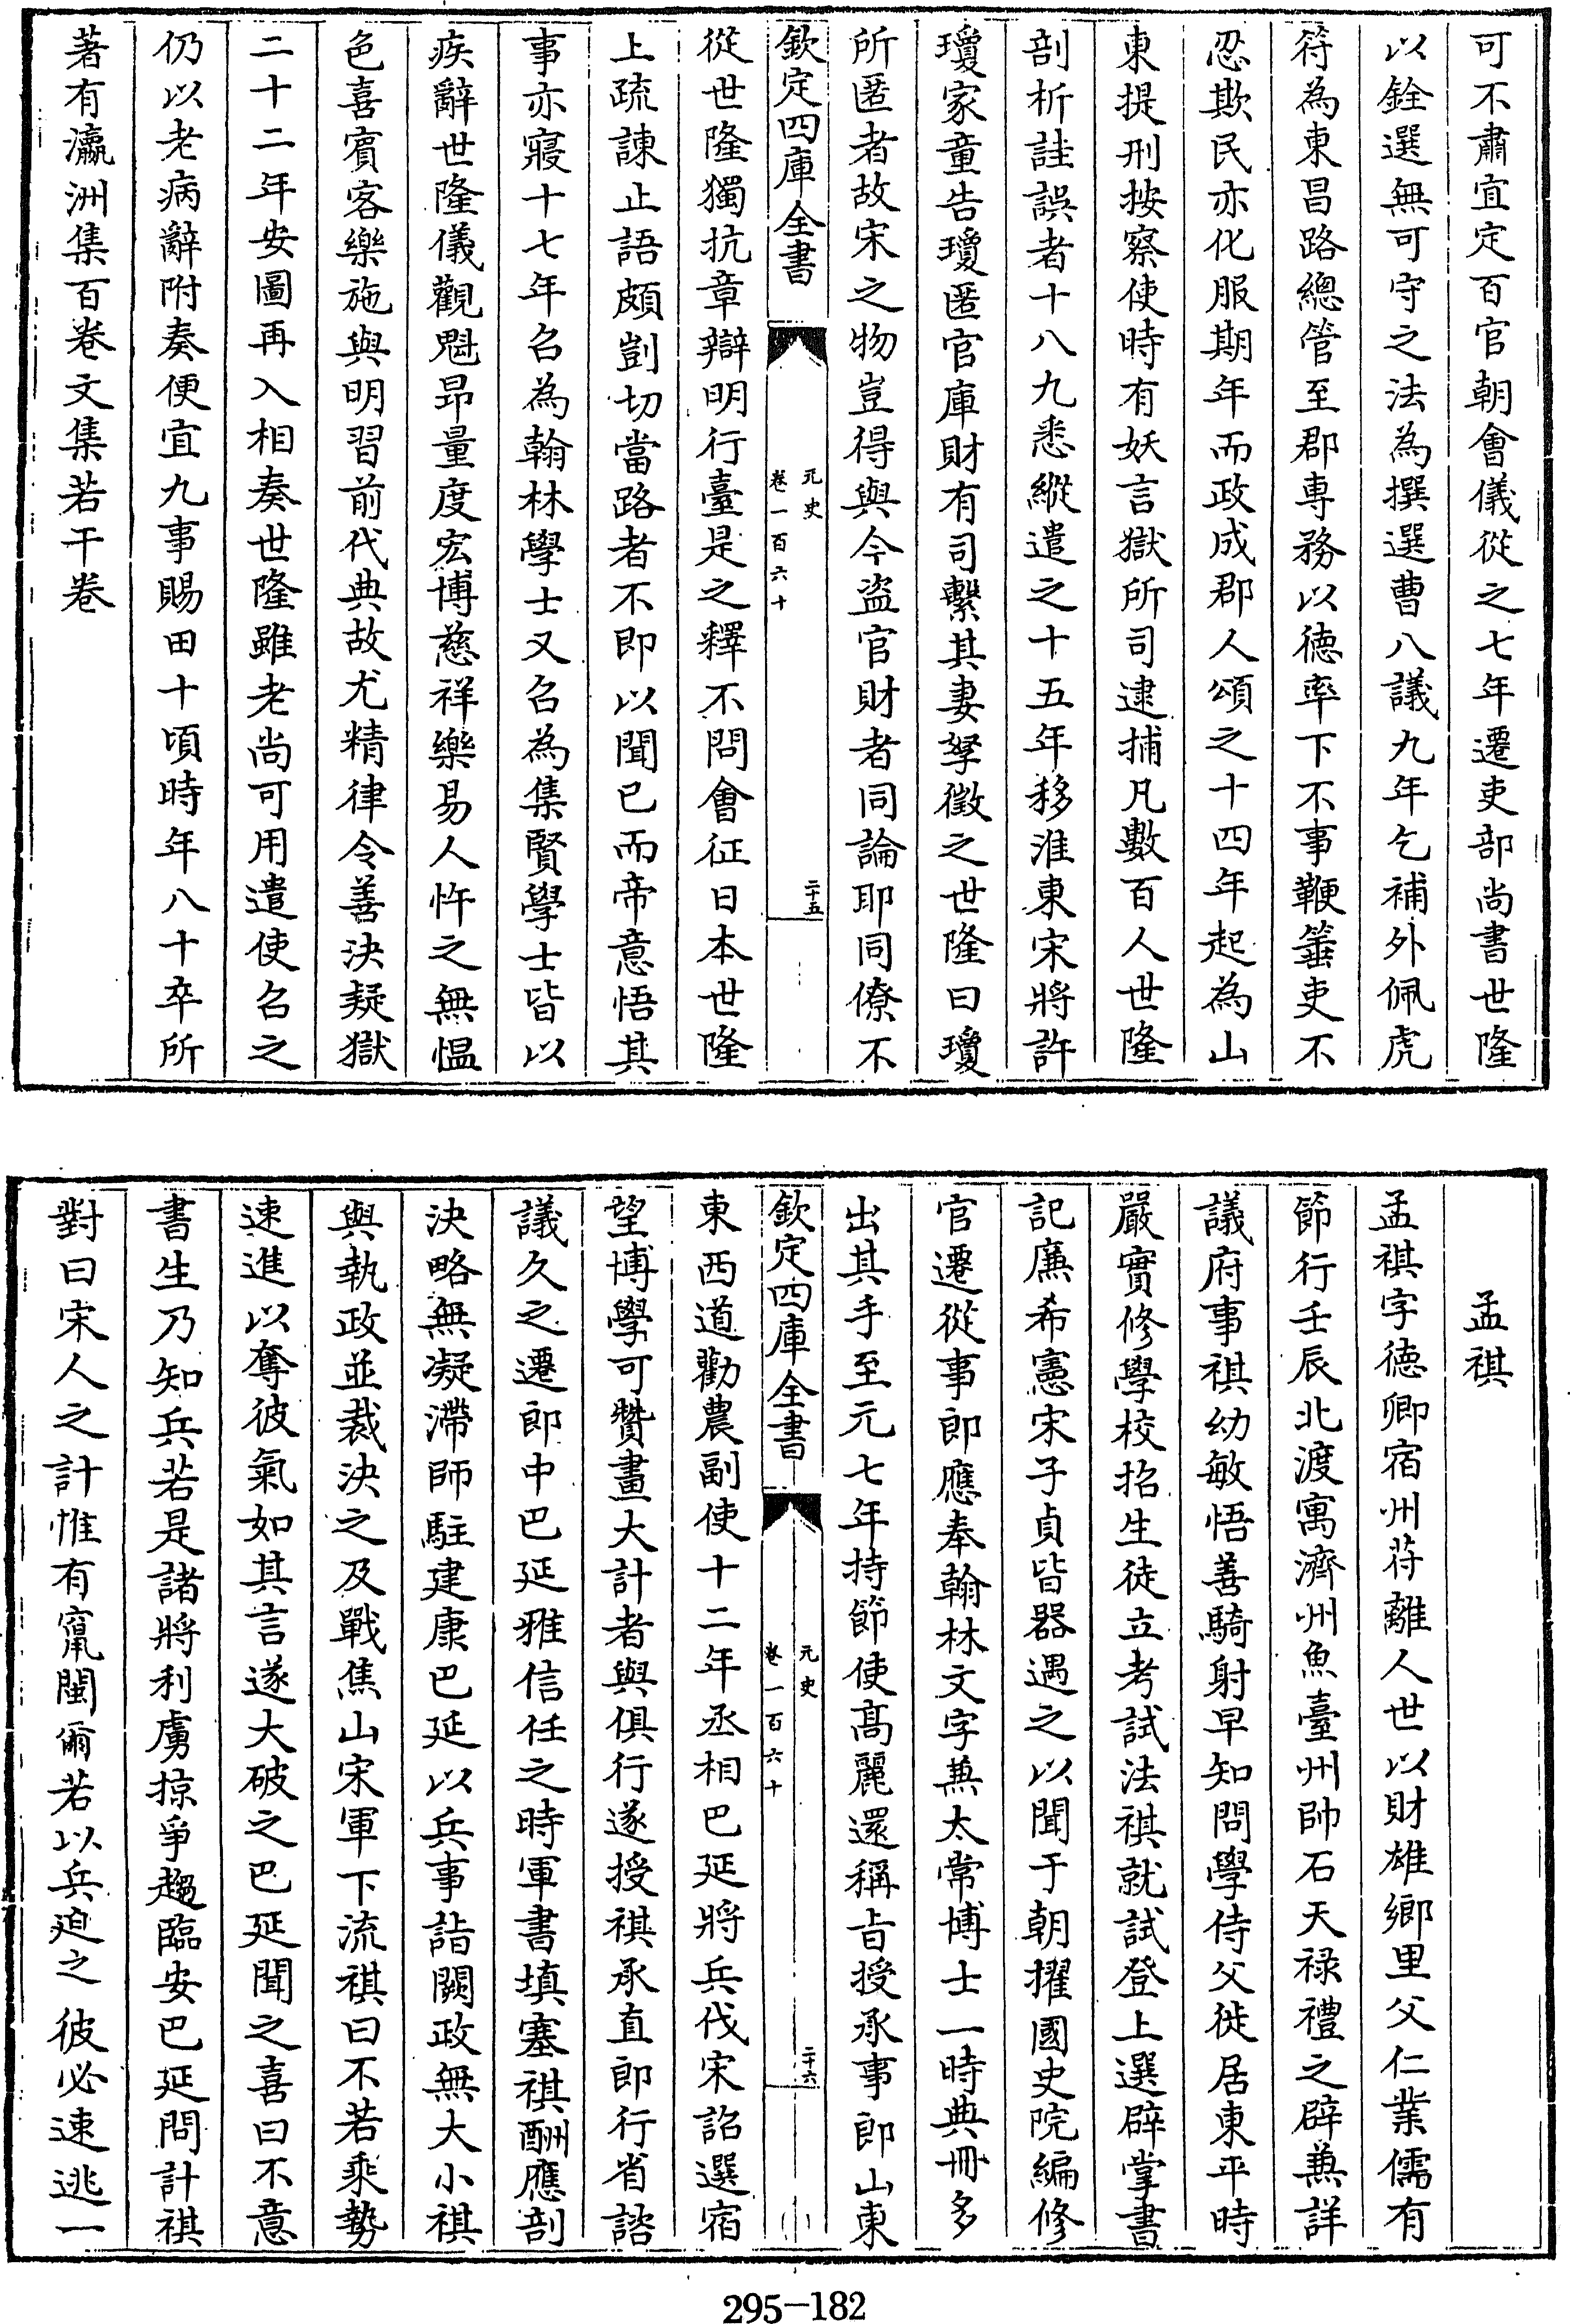 可不肅宜定百官朝會儀從之七年遷吏部尚書世隆
以銓選無可守之法為撰選曹八議九年乞補外佩虎
符為東昌路總管至郡専務以德率下不事鞭箠吏不
忍欺民亦化服期年而政成郡人頌之十四年起為山
東提刑按察使時有妖言獄所司逮捕凡數百人世隆
剖析詿誤者十八九悉縱遣之十五年移淮東宋將許
瓊家童告瓊匿官庫財有司繫其妻孥徵之世隆曰瓊
所匿者故宋之物豈得與今盜官財者同論耶同僚不
欽定四庫全書
元史
卷一百六十
二十五
從世隆獨抗章辯明行臺是之釋不問會征日本世隆
上疏諫止語頗剴切當路者不即以聞已而帝意悟其
事亦寢十七年召為翰林學士又召為集賢學士皆以
疾辭世隆儀觀魁昂量度宏博慈祥樂易人忤之無愠
色喜賓客樂施與明習前代典故尤精律令善決疑獄
二十二年安圖再入相奏世隆雖老尚可用遣使召之
仍以老病辭附奏便宜九事賜田十頃時年八十卒所
著有瀛洲集百卷文集若干卷
孟祺
孟祺字德卿宿州苻離人世以財雄鄉里父仁業儒有
節行壬辰北渡寓濟州魚臺州帥石天祿禮之辟兼詳
議府事祺幼敏悟善騎射早知問學侍父徙居東平時
嚴實修學校招生徒立考試法祺就試登上選辟掌書
記廉希憲宋子貞皆器遇之以聞于朝擢國史院編修
官遷從事郎應奉翰林文字兼太常博士一時典冊多
出其手至元七年持節使髙麗還稱旨授承事郎山東
欽定四庫全書
元史
卷一百六十
二十六
東西道勸農副使十二年丞相巴延將兵伐宋詔選宿
望博學可贊畫大計者與俱行遂授祺承直郎行省諮
議久之遷郎中巴延雅信任之時軍書填塞祺酬應剖
決略無凝滯師駐建康巴延以兵事詣闕政無大小祺
與執政並裁決之及戰焦山宋軍下流祺曰不若乘勢
速進以奪彼氣如其言遂大破之巴延聞之喜曰不意
書生乃知兵若是諸將利虜掠爭趨臨安巴延問計祺
對曰宋人之計惟有竄閩爾若以兵迫之彼必速逃一
295-182